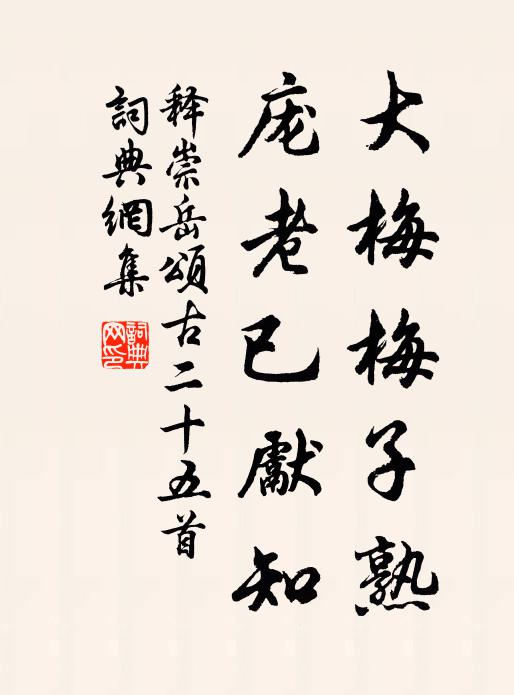 大梅梅子熟
庞老已獻知
释崇岳頌古二十五首
詞典網集
詞典网印